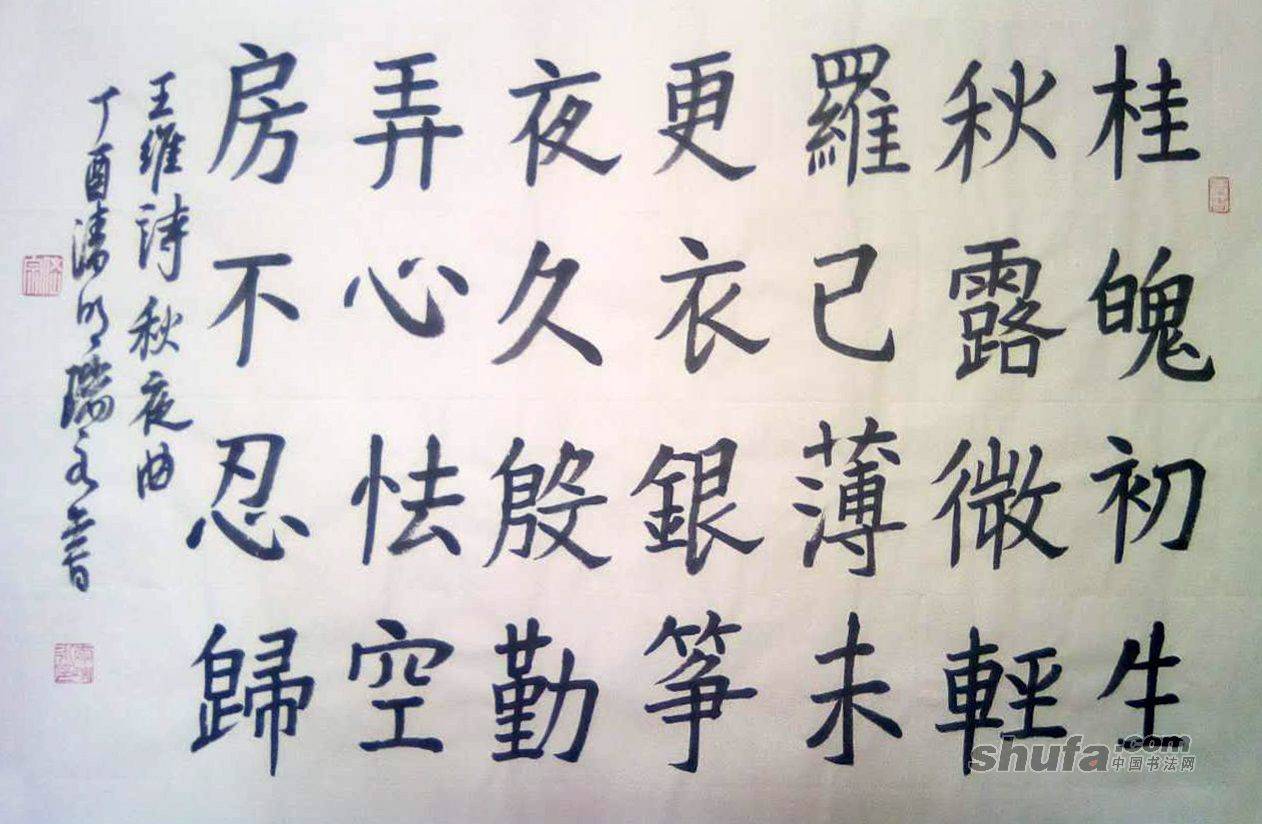 桂魄初生
秋露微輕
羅已薄未
更衣銀筝
夜久殷勤
弄心怯空
房不忍歸
王維詩秋夜曲
丁酉清明瑞
書
shufa.com
中国书法网